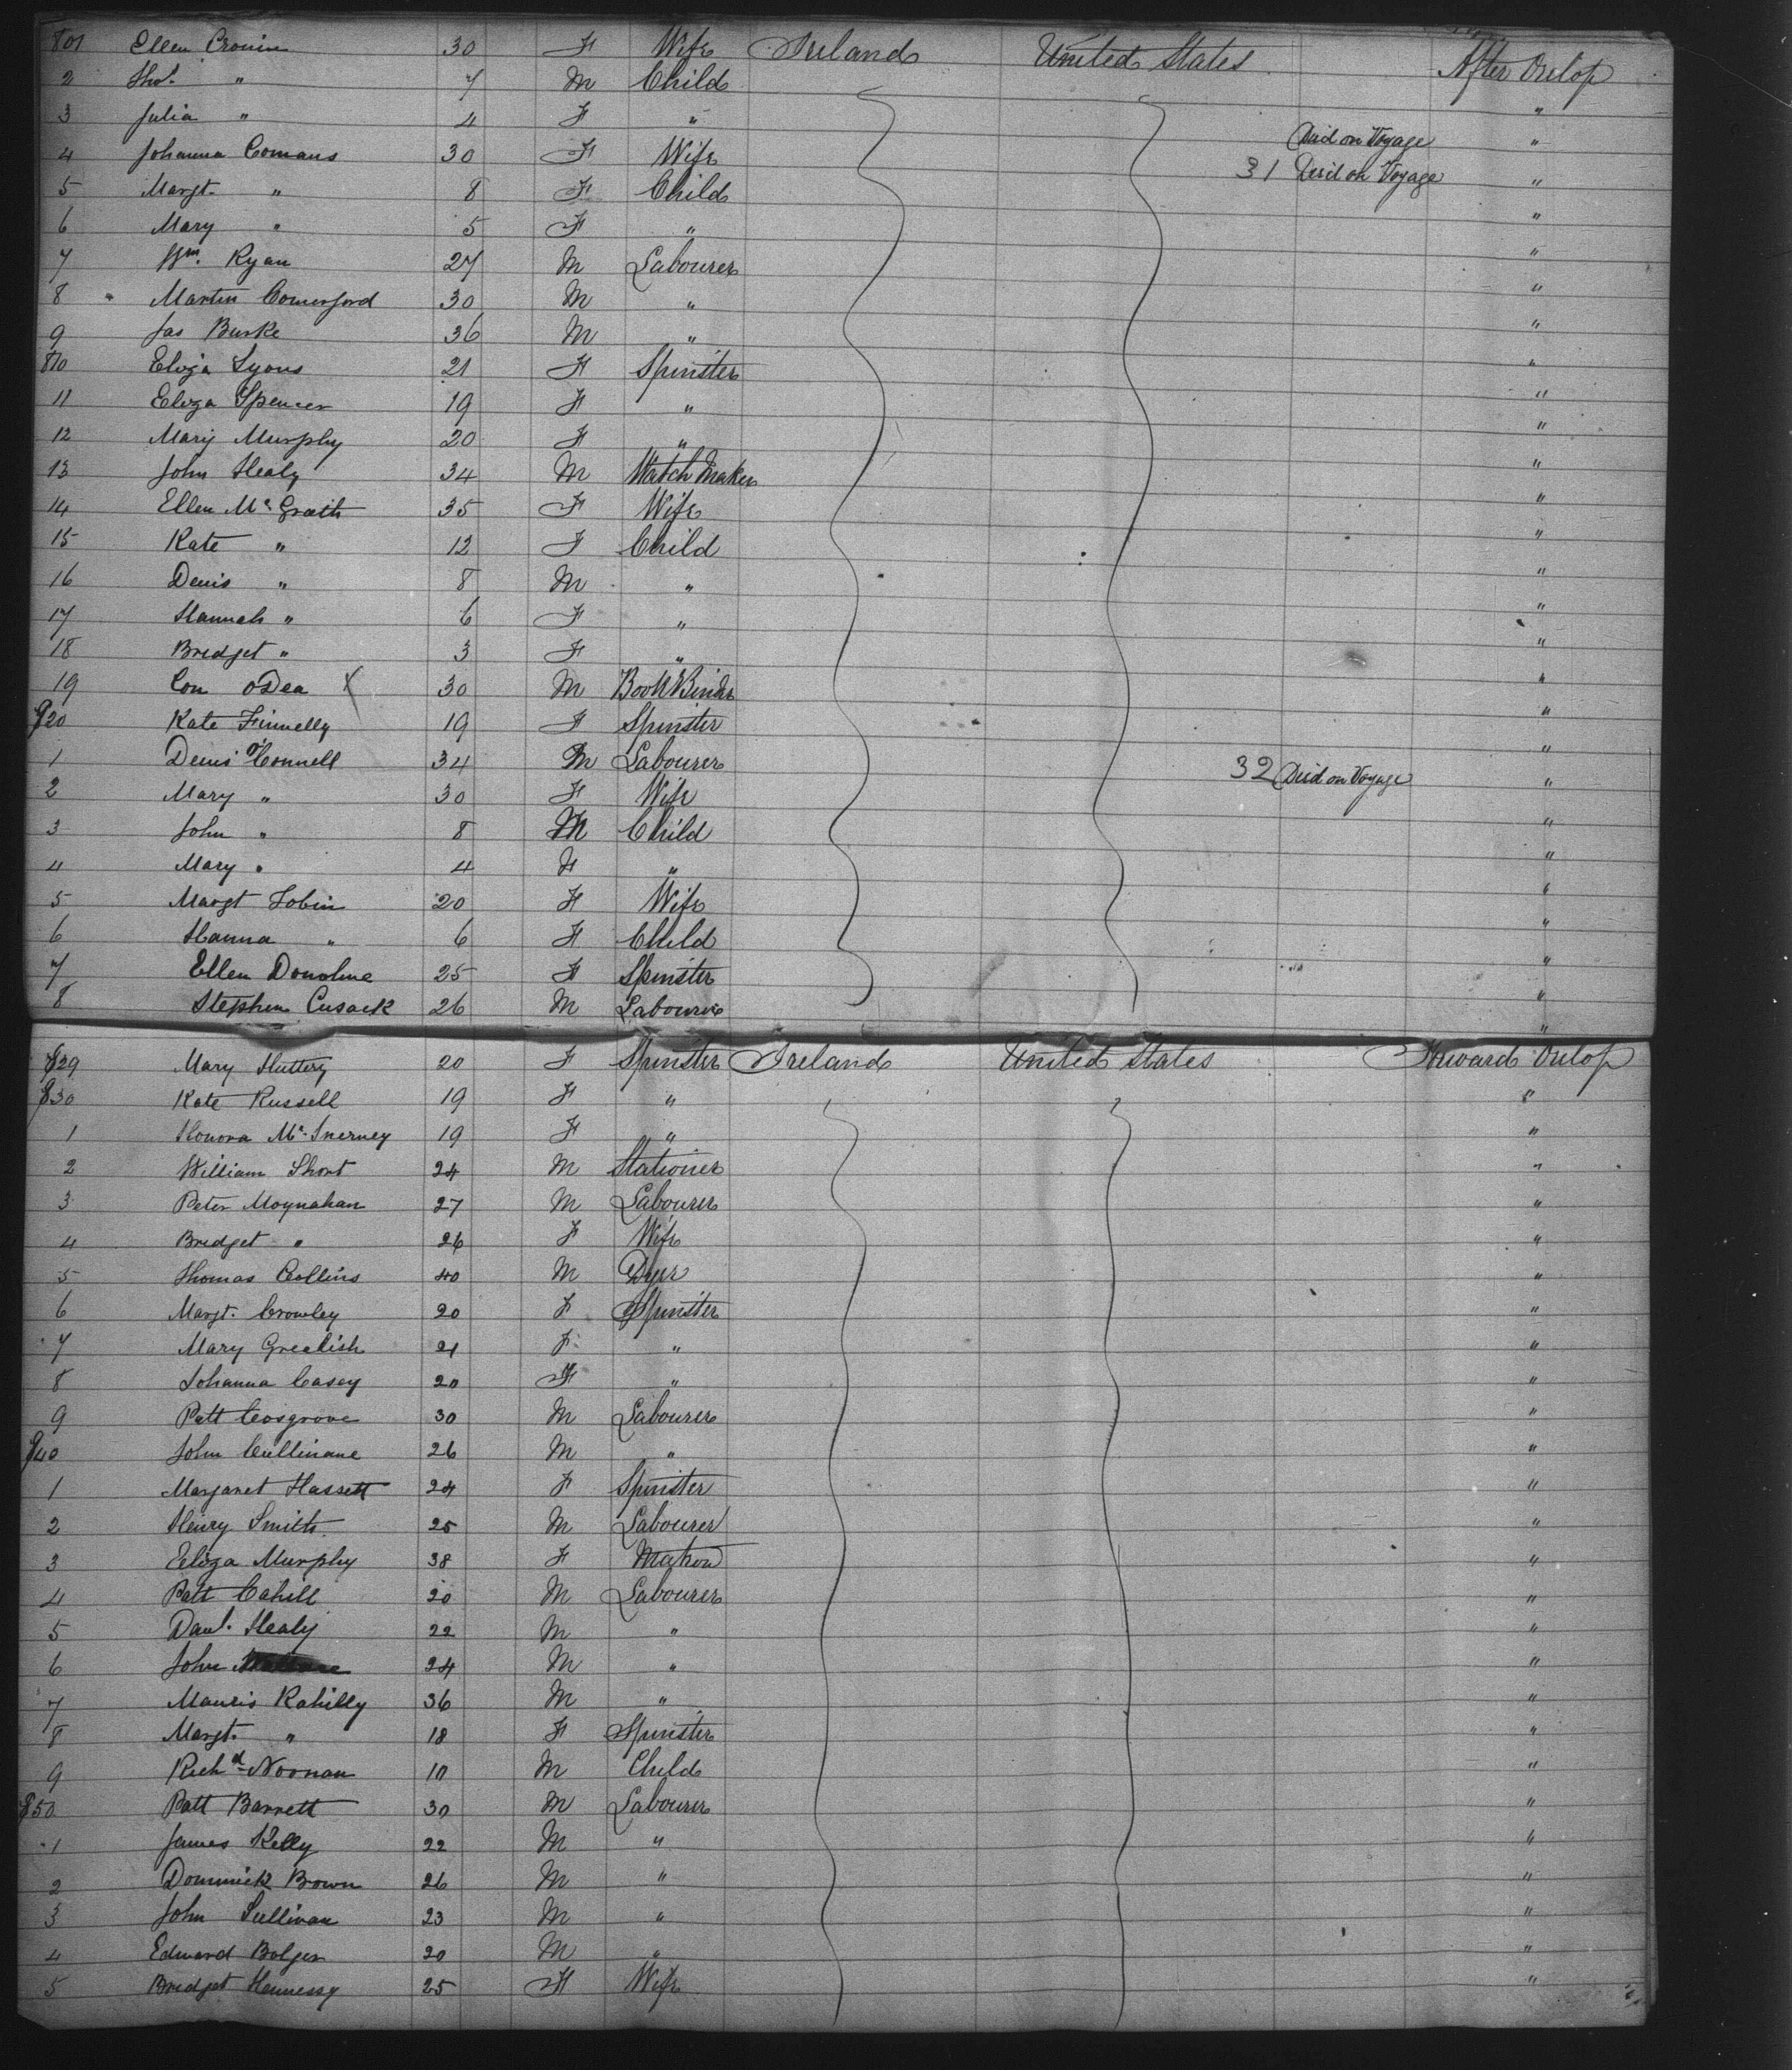 801 Ellen Cronin 30 F Wife Ireland United States After Orlop
2 Tho.s " 7 M Child "
3 Julia " 4 F " Died on Voyage "
4 Johanna Comans 30 F Wife 31 Died on Voyage "
5 Margt. " 8 F Child "
6 Mary " 5 F " "
7 Wm. Ryan 27 M Labourer "
8 Martin Comerford 30 M " "
9 Jas Burke 36 M " "
810 Eliza Lyons 21 F Spinster "
11 Eliza Spencer 19 F " "
12 Mary Murphy 20 F " "
13 John Healy 34 M Watch Maker "
14 Ellen Mc Grath 35 F Wife "
15 Kate " 12 F Child "
16 Denis " 8 M " "
17 Hannah " 6 F " "
18 Bridget " 3 F " "
19 Con O Dea X 30 M Book Binder "
820 Kate Finnelly 19 F Spinster "
1 Denis O'Connell 34 M Labourer 32 Died on Voyage "
2 Mary " 30 F Wife "
3 John " 8 M Child "
4 Mary " 4 F " "
5 Margt Tobin 20 F Wife "
6 Hanna " 6 F Child "
7 Ellen Donohue 25 F Spinster "
8 Stephen Cusack 26 M Labourer "
829 Mary Sluttery 20 F Spinster Ireland United States Forward Orlop
830 Kate Russell 19 F " "
1 Honora Mc Inerney 19 F " "
2 William Short 24 M Stationer "
3 Peter Moynahan 27 M Labourer "
4 Bridget " 26 F Wife "
5 Thomas Collins 40 M Dyer "
6 Margt. Crowley 20 F Spinster "
7 Mary Grealish 21 F " "
8 Johanna Casey 20 F " "
9 Patt Cosgrove 30 M Labourer "
840 John Cullinane 26 M " "
1 Margaret Hassett 24 F Spinster "
2 Henry Smith 25 M Labourer "
3 Eliza Murphy 38 F Matron "
4 Patt Cahill 20 M Labourer "
5 Danl. Healy 22 M " "
6 John 24 M " "
7 Mauris Rahilly 36 M " "
8 Margt. " 18 F Spinster "
9 Richd Noonan 10 M Child "
850 Patt Barrett 30 M Labourer "
1 James Kelly 22 M " "
2 Dominick Brown 26 M " "
3 John Sullivan 23 M " "
4 Edward Bolger 20 M " "
5 Bridget Hennessy 25 F Wife "